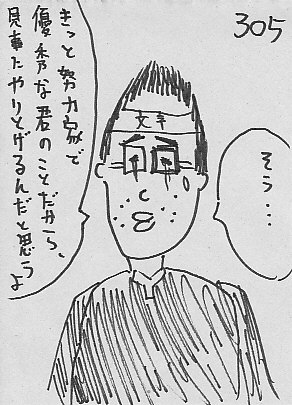 305
そう・・・
きっと努力家で
優秀な君のことだから、
見事にやりとげるんだと思うよ